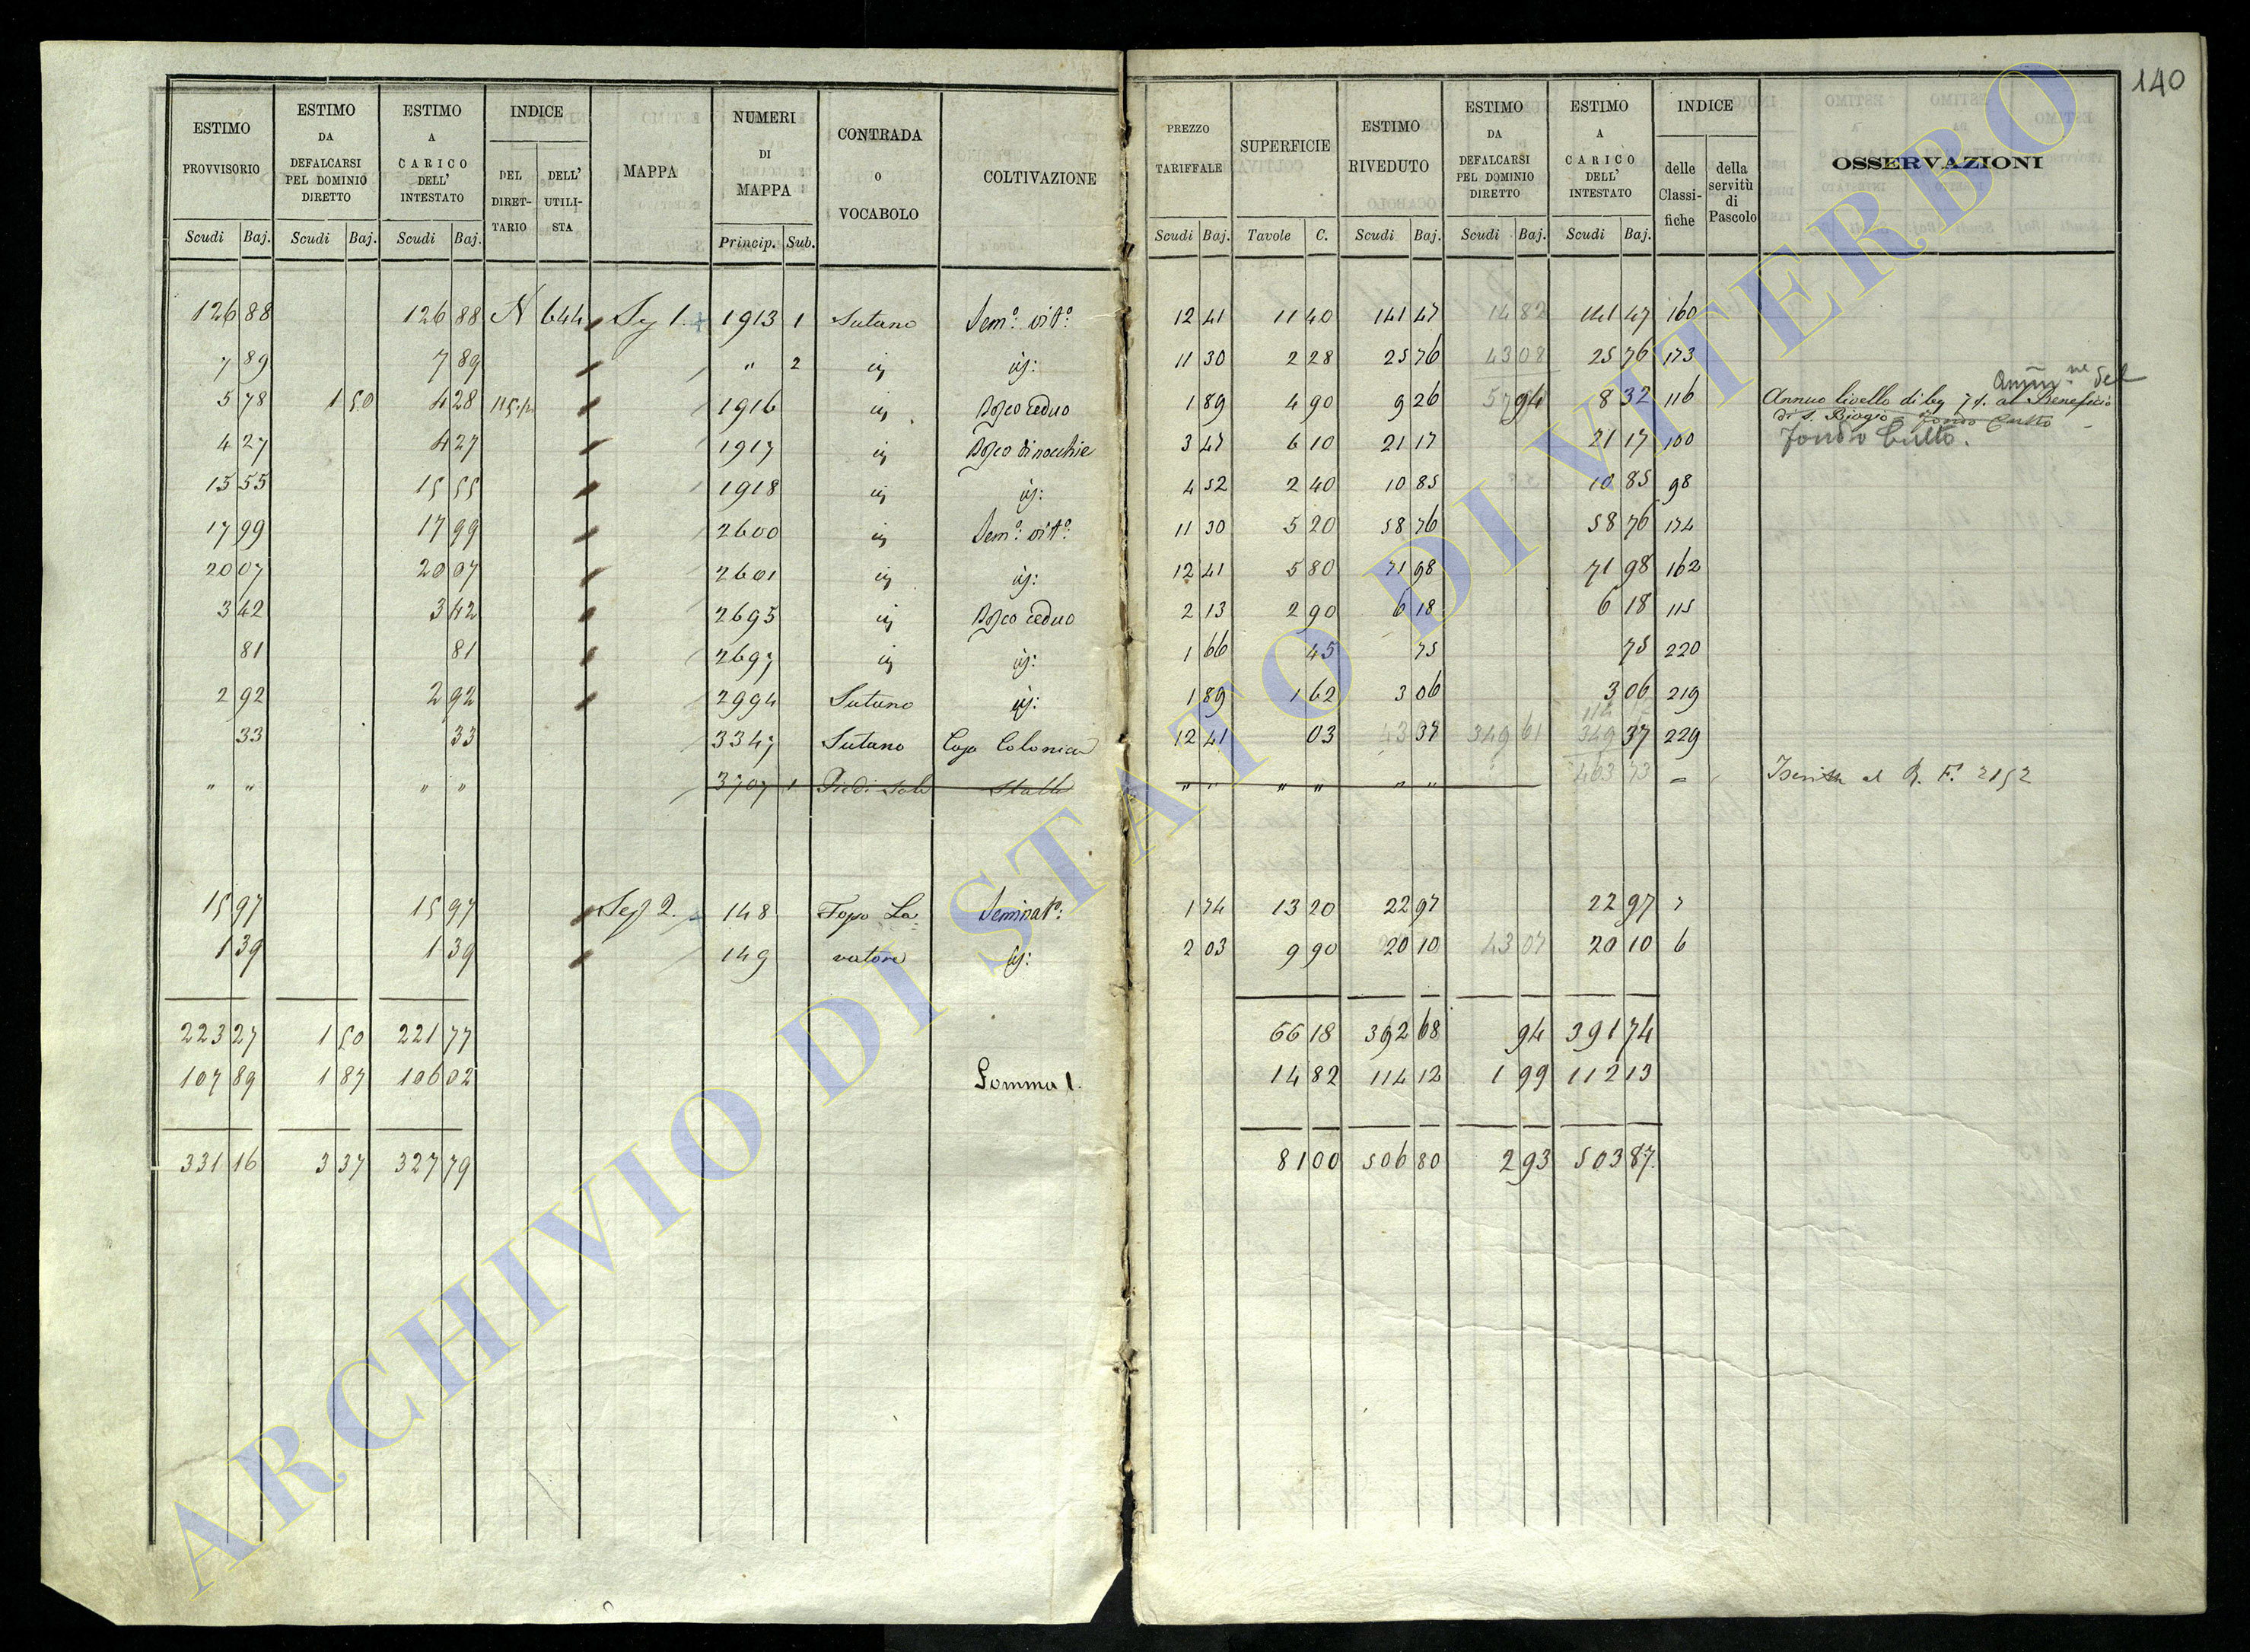 140
ESTIMO PROVVISORIO
ESTIMO DA DEFALCARSI PEL DOMINIO DIRETTO
ESTIMO A CARICO DELL' INTESTATO
INDICE
DEL DIRET-TARIO
DELL' UTILI-STA
MAPPA
NUMERI DI MAPPA
CONTRADA O VOCABOLO
COLTIVAZIONE
PREZZO TARIFFALE
SUPERFICIE
ESTIMO RIVEDUTO
ESTIMO DA DEFALCARSI PEL DOMINIO DIRETTO
ESTIMO A CARICO DELL' INTESTATO
INDICE
delle Classi-fiche
della servitù di Pascolo
OSSERVAZIONI
Scudi Baj. Scudi Baj. Scudi Baj. Princip. Sub. Scudi Baj. Tavole C. Scudi Baj. Scudi Baj. Scudi Baj.
126 88 126 88 N 644 Sez 1. 1913 1 Sutano Sem.º vit.º 12 41 11 40 141 47 14 82 141 47 160
7 89 7 89 " 2 id id: 11 30 2 28 25 76 43 08 25 76 173
5 78 1 50 4 28 1916 id Bosco ceduo 1 89 4 90 9 26 57 94 8 32 116 Annuo livello di al Beneficio
di S. Biagio = fondo Culto
Fondo Culto.
4 27 4 27 1917 id Bosco di nocchie 3 47 6 10 21 17 21 17 100
15 55 15 55 1918 id id: 4 52 2 40 10 85 10 85 98
17 99 17 99 2600 id Sem.º vit.º 11 30 5 20 58 76 58 76 174
20 07 20 07 2601 id id: 12 41 5 80 71 98 71 98 162
3 42 3 42 2695 id Bosco ceduo 2 13 2 90 6 18 6 18 115
81 81 2697 id id: 1 66 45 75 75 220
2 92 2 92 2994 Sutano id: 1 89 1 62 3 06 3 06 219
33 33 3347 Sutano Casa Colonica 12 41 03 37 349 61 37 229
" " " " 3707 1 Piedi Sole Stalla " " " " " " 403 73 = Iscritta al R. F. 2152
15 97 15 97 Sez 2. 148 Topo Sal Seminat.º: 1 74 13 20 22 97 22 97 7
1 39 1 39 149 vatore id: 2 03 9 90 20 10 43 07 20 10 6
223 27 1 50 221 77 66 18 392 68 94 391 74
107 89 1 87 106 02 Somma 1. 14 82 114 12 1 99 112 13
331 16 3 37 327 79 81 00 506 80 2 93 503 87
ARCHIVIO DI STATO DI VITERBO